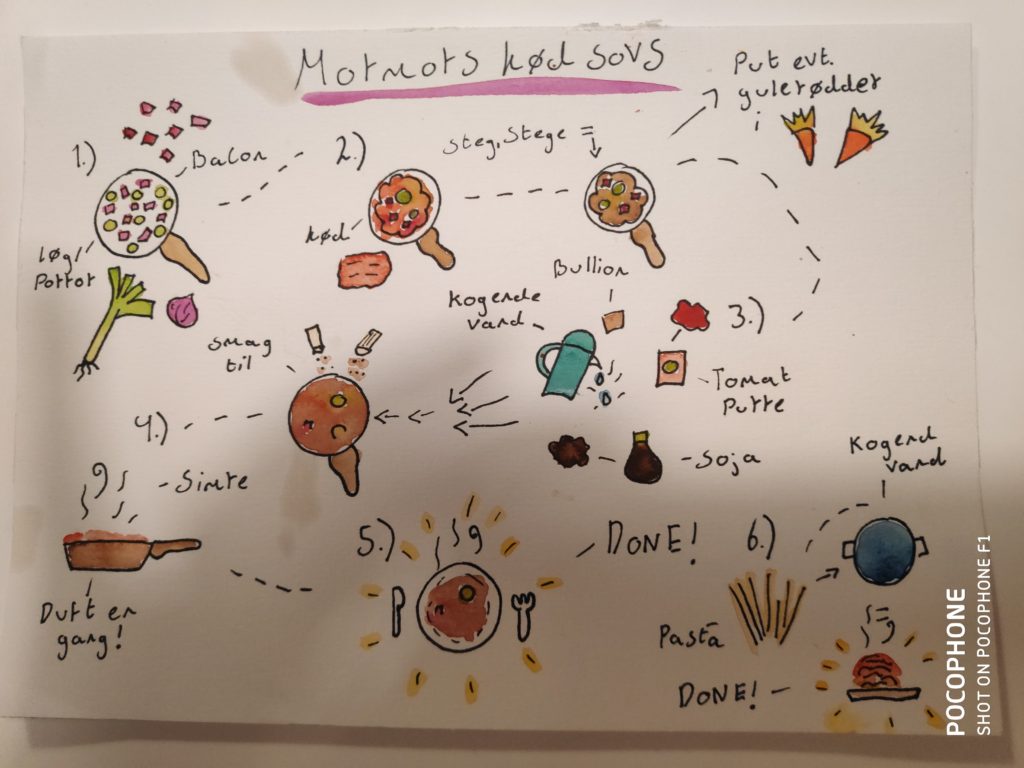 Mormors kød sovs
Put evt.
gulerødder
i
1.)
Bacon
løg/
Porror
2.)
kød
steg, stege =
3.)
Bullion
Kogende
vand
Tomat
Purre
Soja
4.)
smag
til
Simre
Duft en
gang!
5.)
DONE!
6.)
Kogend
vand
Pasta
DONE!
POCOPHONE
SHOT ON POCOPHONE F1